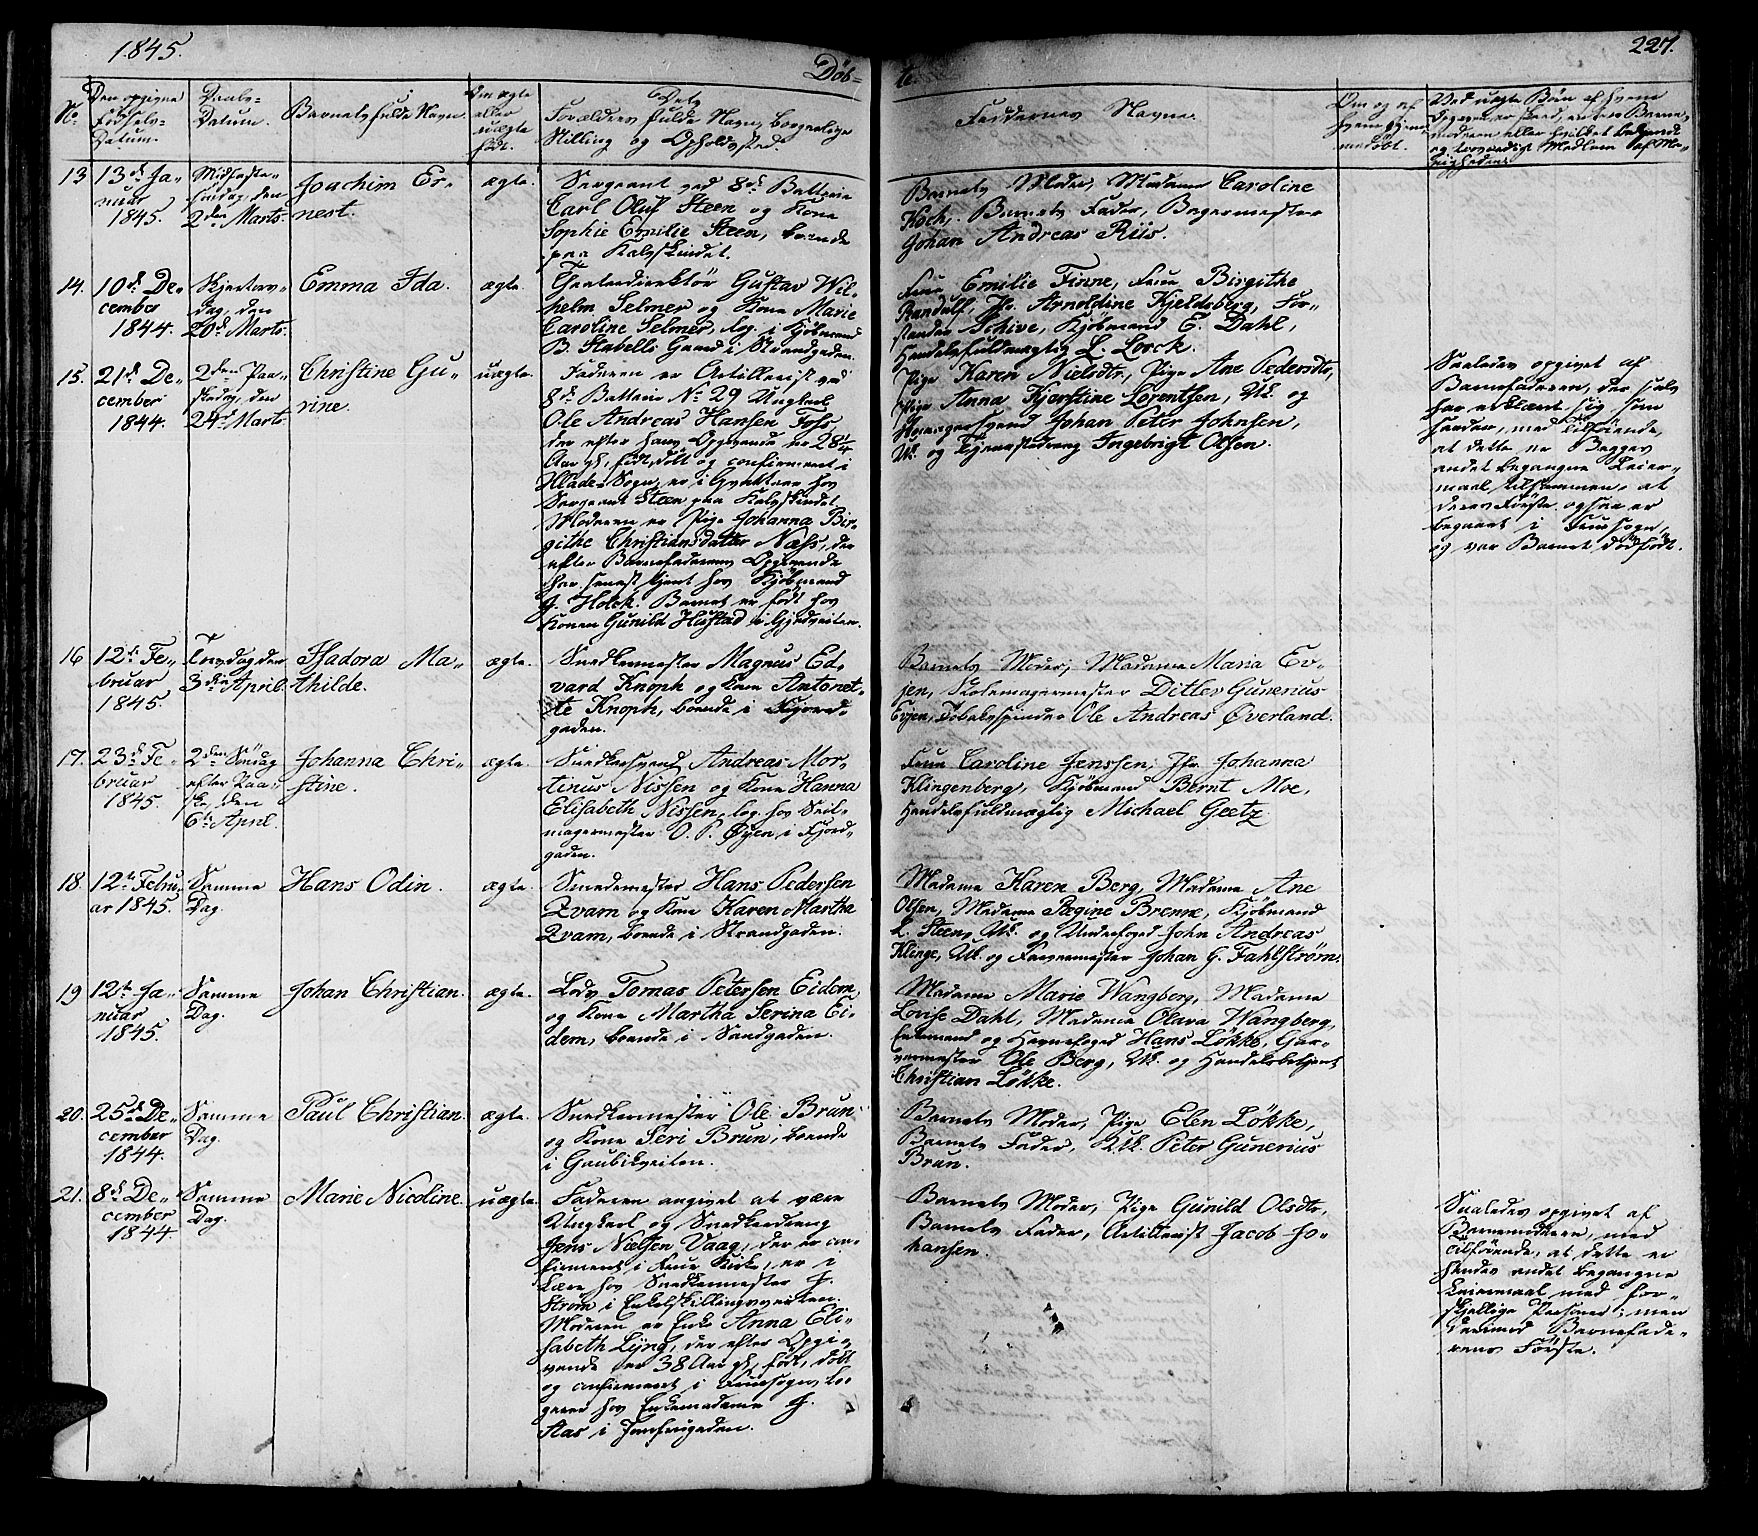 1845.
227.
Döb-
te.
No.
Den opgivne Fødsels-Datum.
Daabs-Datum.
Barnets fulde Navn.
Om ægte eller uægte født.
Dets Forældres fulde Navn, borgerlige Stilling og Opholdssted.
Faddernes Navne.
Om og af hvem hjemmedøbt.
13
13de Ja-
nuar
1845.
Midfaste-
søndag, den
2den Marts.
Joachim Er-
nest.
ægte.
Sergeant ved 8de Batterie
Carl Oluf Steen og Kone
Sophie Emilie Steen, boende
paa Kalvskindet.
Barnets Moder, Madame Caroline
Koch, Barnets Fader, Bagermester
Johan Andreas Riis.
14.
10de De-
cember
1844.
Skjertors-
dag, den
20de Marts.
Emma Ida.
ægte.
Theaterdirektör Gustav Wil-
helm Selmer og Kone Marie
Caroline Selmer, log. i Kjöbmand
B. Stabells Gaard i Strandgaden.
Frue Emilie Finne, Frue Birgithe
Randulf, Jfr. Arnoldine Kjeldsberg, For-
stander Schive, Kjöbmand E. Dahl,
Handelsfuldmægtig L. Lorck.
15.
21de De-
cember
1844.
2den Paa-
skedag, den
24de Marts.
Christine Gu-
rine.
uægte.
Faderen er Artillerist ved
8de Batterie No 29 Ungkarl
Ole Andreas Hansen Foss,
der efter hans Opgivende er 28 1/4
Aar gl., født, døbt og confirmeret i
Hlade-Sogn, er i Qvarteer hos
Sergeant Steen paa Kalvskindet.
Moderen er Pige Johanna Bir-
githe Christiansdatter Næss, der
efter Barnefaderens Opgivende
har senest tjent hos Kjöbmand
J. Holck. Barnet er født hos
Konen Gunild Hustad i Gjedveiten.
Pige Karen Nielsdtr, Pige Ane Pedersdtr,
Pige Anna Kjerstine Lorentsen, Uk. og
Johan Peter Johnsen,
Uk. og Tjenestedreng Ingebrigt Olsen.
Saaledes opgivet af
Barnefaderen, der selv
har erklæret sig som
saadan, med Tilföiende,
at dette er Begges
andet begangne Leier-
maal tilsammen, at
deres Förste ogsaa er
begaaet i Fruesogn,
og var Barnet dødfødt.
16
12te Fe-
bruar
1845.
Torsdag den
3die April.
Isadora Ma-
thilde.
ægte.
Snedkermester Magnus Ed-
vard Knoph og Kone Antonet-
te Knoph, boende i Fjord-
gaden.
Barnets Moder, Madame Maria Ev-
jen, Skomagermester Ditlev Gunerius
Evjen, Tobaksspinder Ole Andreas Øverland.
17.
23de Fe-
bruar
1845.
2den Söndag
efter Paa-
ske, den
6te April.
Johanna Chri-
stine.
ægte.
Snedkersvend Andreas Mor-
tinus Nissen og Kone Hanna
Elisabeth Nissen, log. hos Seil-
magermester O. P. Øyen i Fjord-
gaden.
Frue Caroline Jenssen, Jfr. Johanna
Klingenberg, Kjöbmand Bernt Moe,
Handelsfuldmægtig Michael Geetz
18.
12te Febru-
ar 1845.
Samme
Dag.
Hans Odin.
ægte.
Smedemester Hans Pedersen
Qvam og Kone Karen Martha
Qvam, boende i Strandgaden.
Madame Karen Berg, Madame Ane
Olsen, Madame Regine Brenne, Kjöbmand
L. Steen, Uk. og Underfoged John Andreas
Klinge, Uk. og Farvermester Johan G. Fahlstrøm.
19
12te Ja-
nuar
1845.
Samme
Dag.
Johan Christian.
ægte.
Lods Tomas Petersen Eidem
og Kone Martha Serina Ei-
dem, boende i Sandgaden.
Madame Marie Wangberg, Madame
Lovise Dahl, Madame Olava Wangberg,
Enkemand og Havnefoged Hans Løkke, Gar-
vermester Ole Berg, Uk. og Handelsbetjent
Christian Løkke.
20.
25de De-
cember
1844.
Samme
Dag.
Paul Christian.
ægte.
Snedkermester Ole Brun
og Kone Seri Brun, boende
i Gaubækveiten.
Barnets Moder, Pige Elen Løkke,
Barnets Fader, Uk. Peter Gunerius
Brun.
21.
8de De-
cember
1844
Samme
Dag.
Marie Nicoline.
uægte.
Faderen angives at være
Ungkarl og Snedkerdreng
Jens Nielsen Vaag, der er con-
firmeret i Frue Kirke, er i
Lære hos Snedkermester J.
Strøm i Enkelskillingsveiten.
Moderen er Enke Anna Eli-
sabeth Lyng, der efter Opgi-
vende er 38 Aar gl., født, døbt
og confirmeret i Fruesogn, lo-
gerer hos Enkemadame J.
Aas i Jomfrugaden.
Barnets Moder, Pige Gunild Olsdtr,
Barnets Fader, Artillerist Jacob Jo-
hansen.
Saaledes opgivet af
Barnemoderen, med
Tilföiende, at dette er
hendes andet begangne
Leiermaal med for-
skjellige Personer; men
derimod Barnefade-
rens Förste.